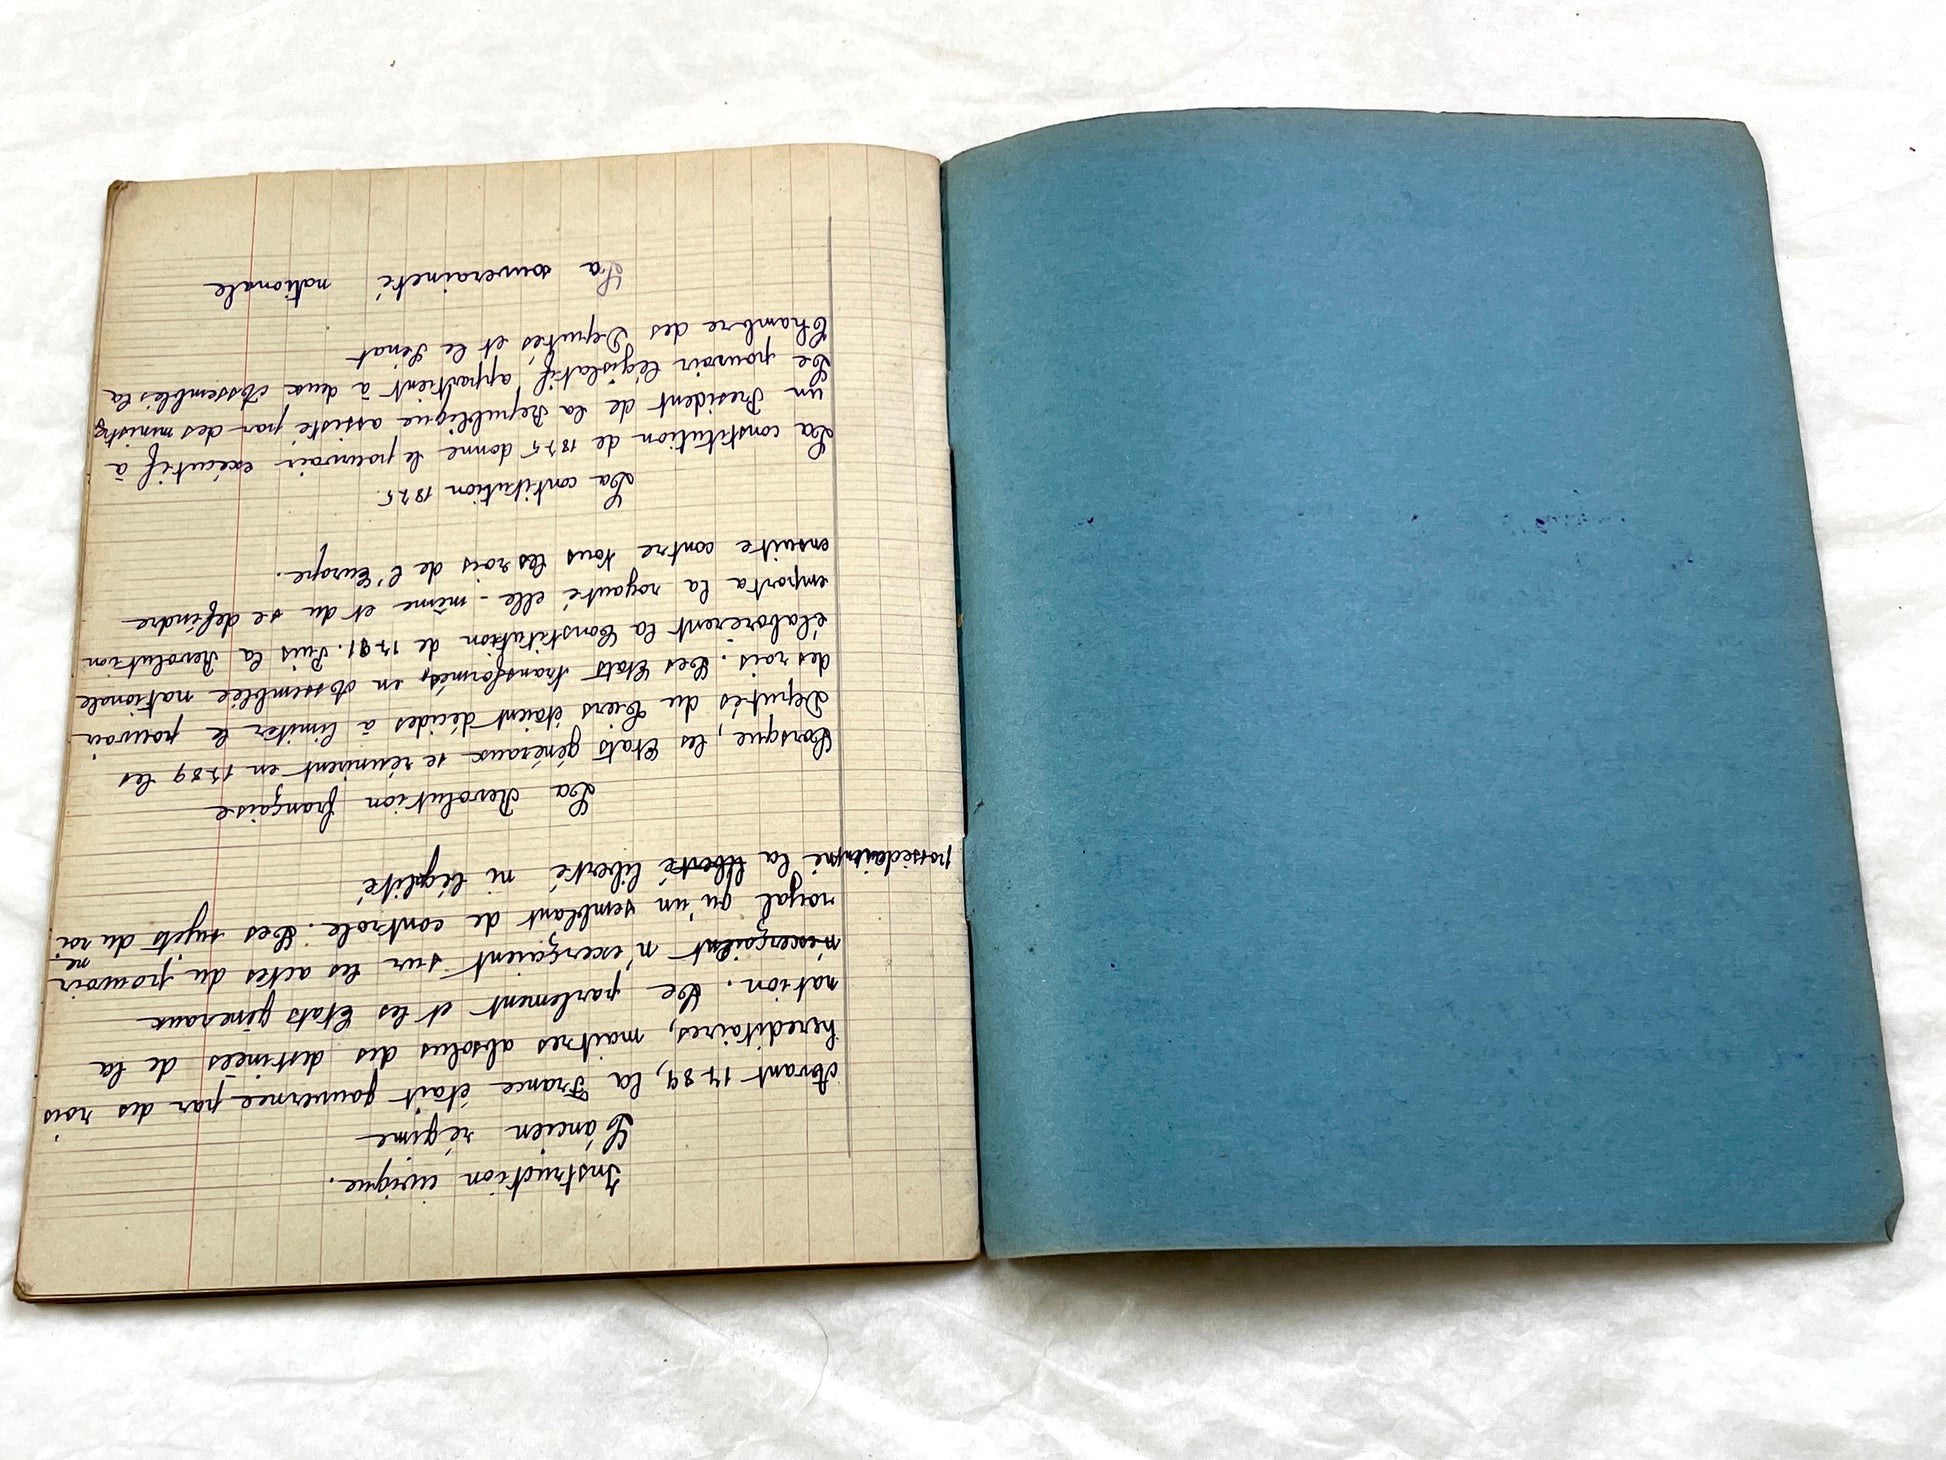 Instruction civique.
L'ancien régime
Avant 1789, la France était gouvernée par des rois
hereditaires, maitres absolus des destinées de la
nation. Le parlement et les Etats géneraux
n'exerçaient n'exerçaient sur les actes du pouvoir
royal qu'un semblant de controle. Les sujets du roi ne
possédaient ni la liberté liberté ni légalité
La Revolution française
Lorsque, les Etats généraux se réunirent en 1789 les
Deputés du Tiers étaient décides à limiter le pouvoir
des rois. Les Etats transformés, en Assemblée nationale
élaborèrent la Constitution de 1791. Puis la Revolution
emporta la royauté elle-même et du se defendre
ensuite contre tous les rois de l'Europe.
La contitution 1875.
La constitution de 1875 donne le pouvoir exécutif à
un President de la Republique assisté par des ministres
Le pouvoir législatif, appartient à deux Assemblés la
Chambre des Deputés et le Senat
La souveraineté nationale